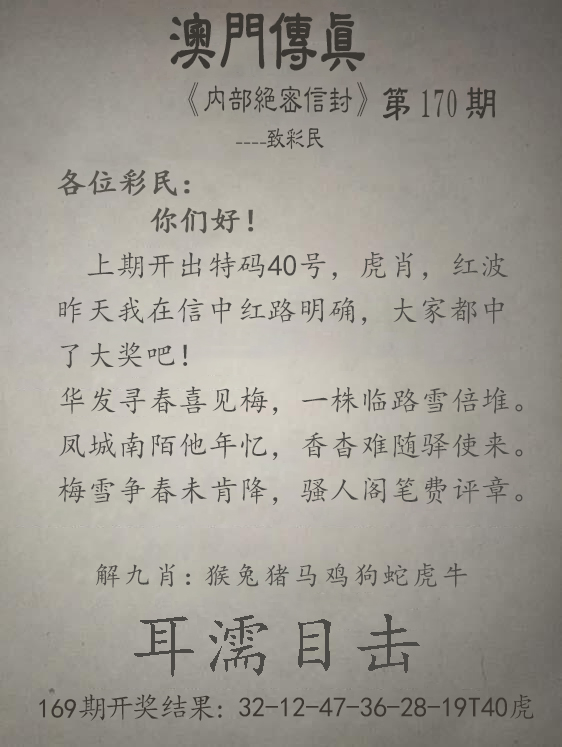 澳門傳真
《内部絕密信封》第170期
----致彩民
各位彩民：
你们好！
上期开出特码40号，虎肖，红波
昨天我在信中红路明确，大家都中
了大奖吧！
华发寻春喜见梅，一株临路雪倍堆。
凤城南陌他年忆，香杳难随驿使来。
梅雪争春未肯降，骚人阁笔费评章。
解九肖：猴兔猪马鸡狗蛇虎牛
耳濡目击
169期开奖结果：32-12-47-36-28-19T40虎